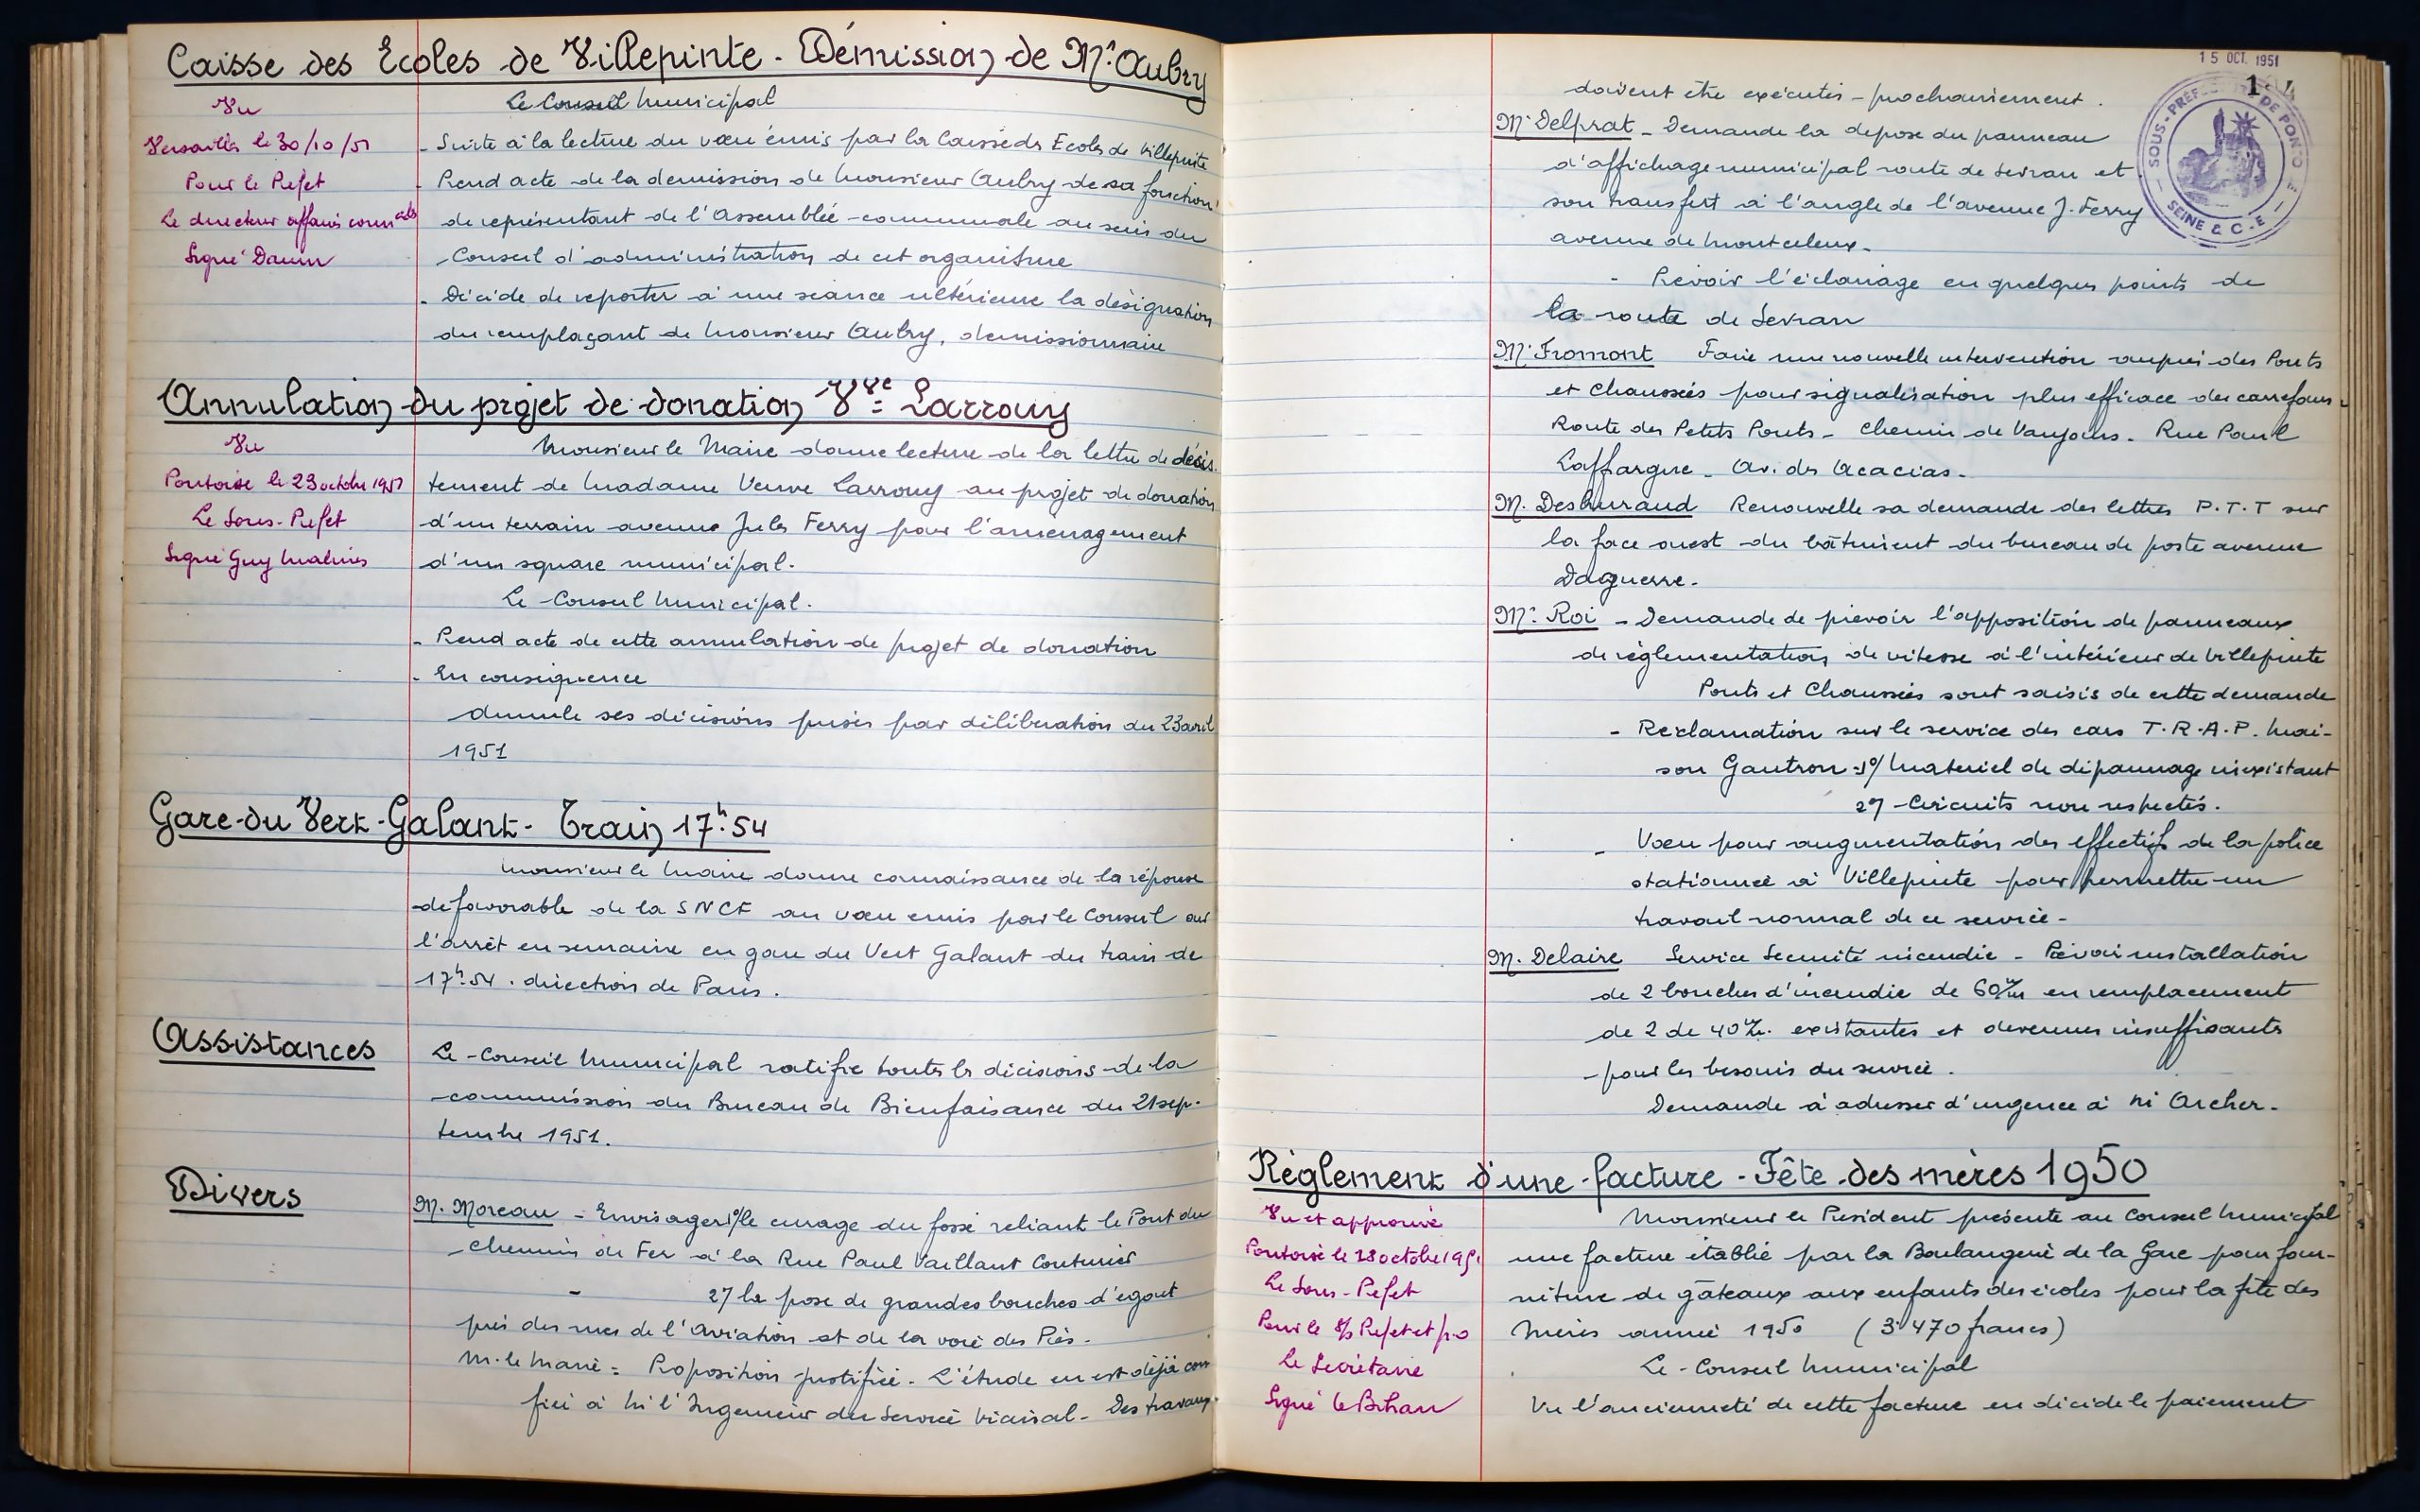 Caisse des Ecoles de Villepinte - Démission de Mr. Aubry
Vu
Versailles le 30/10/51
Pour le Prefet
Le directeur affaires comales
Signé Daum
Le Conseil Municipal
- Suite à la lecture du vœu émis par la Caisse des Ecoles de Villepinte
- Prend acte de la demission de Monsieur Aubry de sa fonction
de représentant de l'Assemblée communale au sein du
Conseil d'administration de cet organisme
- Décide de reporter à une séance ultérieure la désignation
du remplaçant de Monsieur Aubry, demissionnaire
Annulation du projet de donation Vve Larrouy
Vu
Pontoise le 23 octobre 1951
Le Sous-Prefet
Signé Guy Malines
Monsieur le Maire donne lecture de la lettre de désis-
tement de Madame Veuve Larrouy au projet de donation
d'un terrain avenue Jules Ferry pour l'aménagement
d'un square municipal.
Le Conseil Municipal.
- Prend acte de cette annulation de projet de donation
- En conséquence
annule ses décisions prises par délibération du 23 avril
1951
Gare du Vert-Galant - Train 17h.54
Monsieur le Maire donne connaissance de la réponse
défavorable de la SNCF au vœu emis par le Conseil sur
l'arrêt en semaine en gare du Vert Galant du train de
17h.54. direction de Paris.
Assistances
Le Conseil Municipal ratifie toutes les décisions de la
commission du Bureau de Bienfaisance du 21 sep-
tembre 1951.
Divers
M. Moreau - Envisager 1º/ le curage du fossé reliant le Pont du
Chemin de Fer à la Rue Paul Vaillant Couturier
- 2º/ la pose de grandes bouches d'egout
près des rues de l'Aviation et de la voie des Prés.
M. le Maire = Proposition justifiée - L'étude en est déjà con
fiée à Mr l'Ingenieur du Service Vicinal - Des travaux
15 OCT. 1951
SOUS-PREFECTURE DE PONTOISE
SEINE & O-E
doivent être executés - prochainement.
Mr Delprat - Demande la depose du panneau
d'affichage municipal route de Sevran et
son transfert à l'angle de l'avenue J. Ferry
avenue de Montceleux.
- Revoir l'éclairage en quelques points de
la route de Sevran
Mr Fromont Faire une nouvelle intervention auprès des Ponts
et Chaussées pour signalisation plus efficace des carrefours:
Route des Petits Ponts - Chemin de Vaujours - Rue Paul
Laffargue - Av. des Acacias.
M. Deshuraud Renouvelle sa demande des lettres P.T.T sur
la face ouest du bâtiment du bureau de poste avenue
Daguerre.
Mr. Roi - Demande de prévoir l'apposition de panneaux
de règlementation de vitesse à l'intérieur de Villepinte
Ponts et Chaussées sont saisis de cette demande
- Reclamation sur le service des cars T.R.A.P. Mai-
son Gautron = 1º/ Materiel de dépannage inexistant
2º/ - Circuits non respectés.
- Vœu pour augmentation des effectifs de la police
stationnée à Villepinte pour permettre un
travail normal de ce service -
M. Delaire Service Securité incendie - Prévoir installation
de 2 bouches d'incendie de 60m/m en remplacement
de 2 de 40m/m. existantes et devenues insuffisants
- pour les besoins du service.
Demande à adresser d'urgence à Mr Archer.
Règlement d'une facture - Fête des mères 1950
Vu et approuvé
Pontoise le 23 octobre 1951
Le Sous-Prefet
Pour le S/s Prefet et p.o
Le Secrétaire
Signé Le Bihan
Monsieur le President présente au Conseil Municipal
une facture établie par la Boulangerie de la Gare pour four-
niture de gâteaux aux enfants des écoles pour la fête des
Mères année 1950 (3.470 francs)
Le Conseil Municipal
Vu l'ancienneté de cette facture en décide le paiement